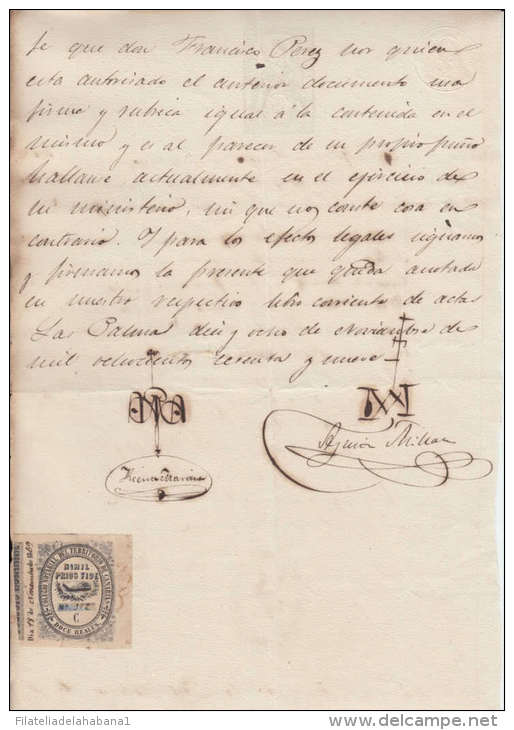 fe que don Francisco Perez por quien
esta autorizado el anterior documento usa
firma y rubrica igual á la contenida en el
mismo y es al parecer de su propio puño
hallarse actualmente en el ejercicio de
su ministerio, sin que nos conste cosa en
contrario. Y para los efectos legales signamos
y firmamos la presente que queda anotada
en nuestro respectivo libro corriente de actas
Las Palmas diez y ocho de Noviembre de
mil ochocientos sesenta y nueve
COLEGIO NOTARIAL DEL TERRITORIO DE CANARIAS
NIHIL
PRIUS FIDE
C
DOCE REALES
Dia 18 de Noviembre de 1869
Filateliadelahabana1
http://www.delcampe.net